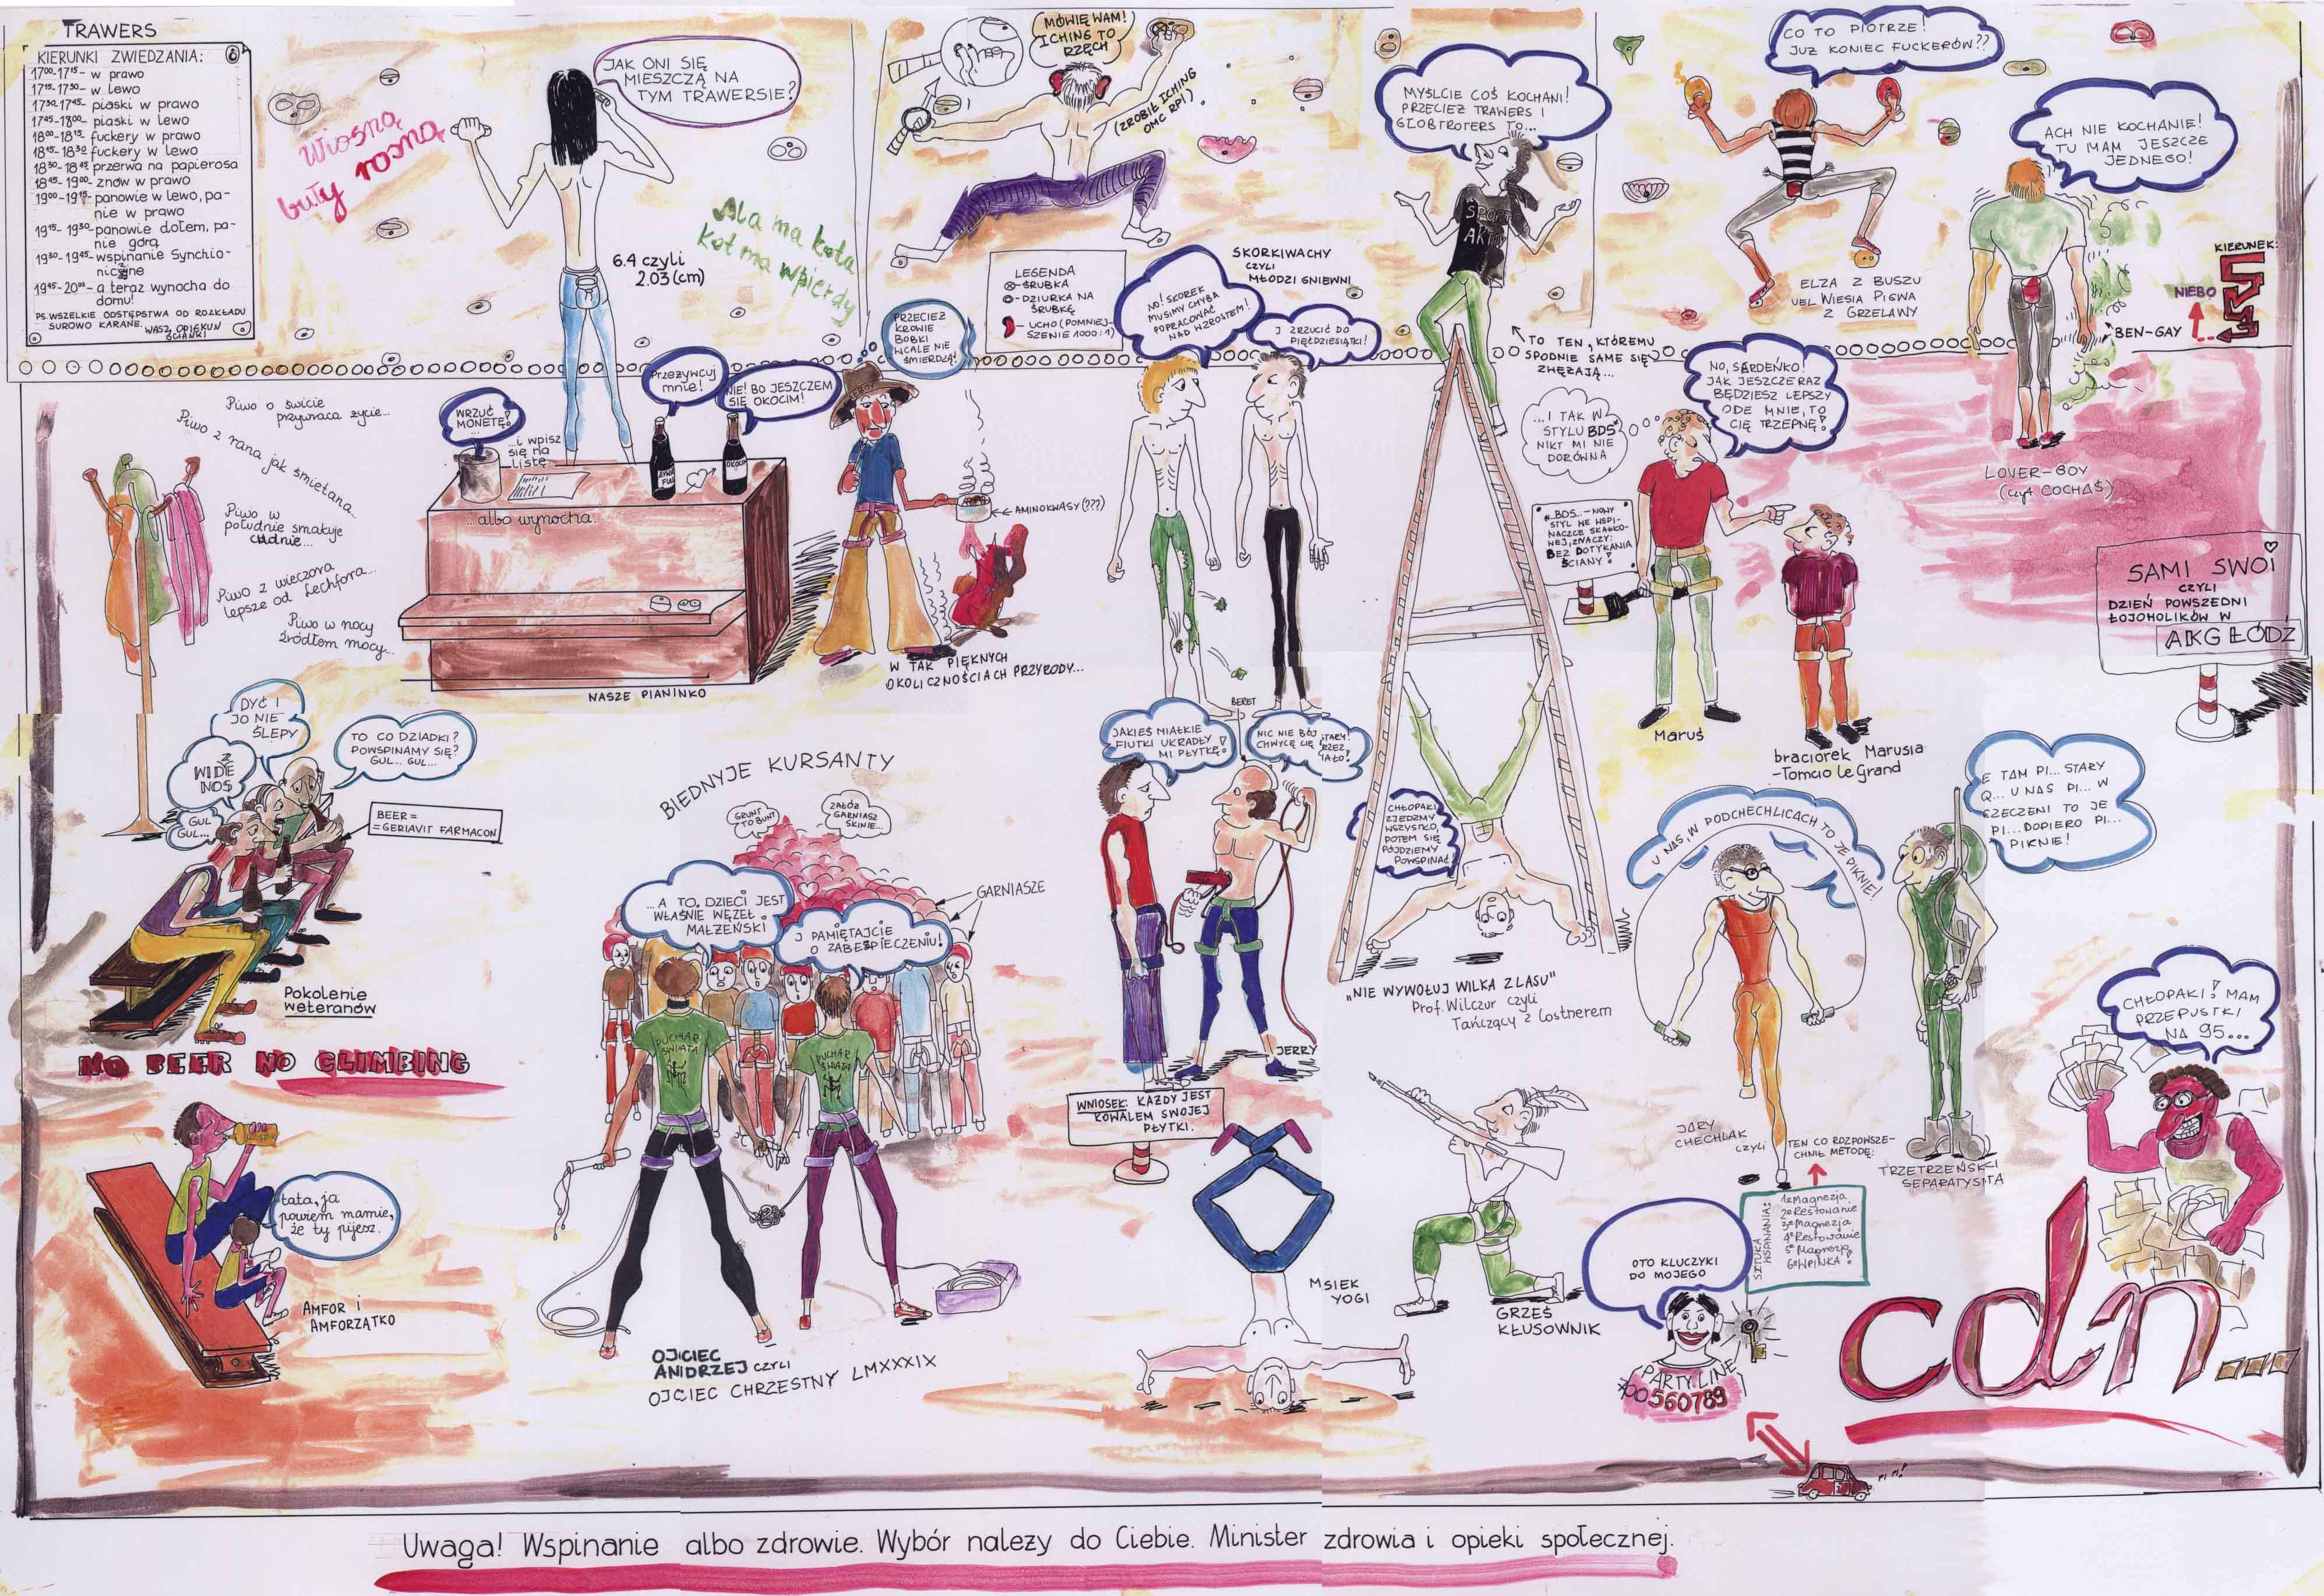 TRAWERS
KIERUNKI ZWIEDZANIA:
17⁰⁰-17¹⁵- w prawo
17¹⁵-17³⁰- w lewo
17³⁰-17⁴⁵- piaski w prawo
17⁴⁵-18⁰⁰- piaski w lewo
18⁰⁰-18¹⁵- fuckery w prawo
18¹⁵-18³⁰ fuckery w lewo
18³⁰-18⁴⁵ przerwa na papierosa
18⁴⁵-19⁰⁰- znów w prawo
19⁰⁰-19¹⁵- panowie w lewo, pa-
nie w prawo
19¹⁵- 19³⁰-panowie dołem, pa-
nie górą
19³⁰-19⁴⁵-wspinanie Synchio-
niczne
19⁴⁵-20⁰⁰- a teraz wynocha do
domu!
PS. WSZELKIE ODSTĘPSTWA OD ROZKŁADU
SUROWO KARANE. WASZ OPIEKUN
ŚCIANKI
Wiosną
buły rosną
JAK ONI SIĘ
MIESZCZĄ NA
TYM TRAWERSIE?
6.4 czyli
2.03 (cm)
Ala ma kota
Kot ma wpierdy
MÓWIĘ WAM!
ICHING TO
RZĘCH
(ZROBIŁ ICHING
OMC RP!)
LEGENDA
- ŚRUBKA
- DZIURKA NA
ŚRUBKĘ
- UCHO (POMNIEJ-
SZENIE 1000:1)
SKORKIWACHY
CZYLI
MŁODZI GNIEWNI
NO! SKOREK
MUSIMY CHYBA
POPRACOWAĆ
NAD WZROSTEM!
I ZRZUCIĆ DO
PIĘĆDZIESIĄTKI!
MYŚLCIE COŚ KOCHANI!
PRZECIEŻ TRAWERS I
GLOBTROTERS TO...
SPORT
AKT
TO TEN, KTÓREMU
SPODNIE SAME SIĘ
ZWĘŻAJĄ...
CO TO PIOTRZE!
JUŻ KONIEC FUCKERÓW??
ELZA Z BUSZU
VEL WIESIA PIGWA
Z GRZELAWY
ACH NIE KOCHANIE!
TU MAM JESZCZE
JEDNEGO!
KIERUNEK:
NIEBO
BEN-GAY
LOVER-BOY
(czyt COCHAŚ)
Piwo o świcie
przywraca życie...
Piwo z rana jak śmietana...
Piwo w
południe smakuje
cudnie...
Piwo z wieczora
lepsze od Lechfora...
Piwo w nocy
źródłem mocy...
WRZUĆ
MONETĘ!
...
...i wpisz
się na
listę
...albo wynocha.
Przezywcuj
mnie!
NIE! BO JESZCZEM
SIĘ OKOCIM!
OKOCIM
NASZE PIANINKO
PRZECIEŻ
KROWIE
BOBKI
WCALE NIE
ŚMIERDZĄ!
AMINOKWASY (???)
W TAK PIĘKNYCH
OKOLICZNOŚCIACH PRZYRODY...
...I TAK W
STYLU BDS
NIKT MI NIE
DORÓWNA
NO, SERDEŃKO!
JAK JESZCZE RAZ
BĘDZIESZ LEPSZY
ODE MNIE, TO
CIĘ TRZEPNĘ!
„BDS„-NOWY
STYL WE WSPI-
NACZCE SKAŁKO-
WEJ, ZNACZY:
BEZ DOTYKANIA
ŚCIANY!
Maruś
braciorek Marusia
-Tomcio le Grand
SAMI SWOI
CZYLI
DZIEŃ POWSZEDNI
ŁOJOHOLIKÓW W
AKG ŁÓDŹ
DYĆ I
JO NIE
ŚLEPY
WIDZĘ
NOS
GUL
GUL...
TO CO DZIADKI?
POWSPINAMY SIĘ?
GUL... GUL...
BEER=
=GERIAVIT FARMACON
Pokolenie
weteranów
NO BEER NO CLIMBING
tata, ja
powiem mamie,
że ty pijesz.
AMFOR I
AMFORZĄTKO
BIEDNYJE KURSANTY
GRUNT
TO BUNT
ZAŁÓŻ
GARNIASZ
SKINIE...
GARNIASZE
...A TO, DZIECI JEST
WŁAŚNIE WĘZEŁ
MAŁŻEŃSKI
I PAMIĘTAJCIE
O ZABEZPIECZENIU!
PUCHAR
ŚWIATA
PUCHAR
ŚWIATA
OJCIEC
ANDRZEJ CZYLI
OJCIEC CHRZESTNY LMXXXIX
BERET
JAKIEŚ MIAŁKIE
FIUTKI UKRADŁY
MI PŁYTKĘ!
NIC NIE BÓJ STARY!
CHWYCĘ CIĘ PRZEZ
CIAŁO!
JERRY
WNIOSEK: KAŻDY JEST
KOWALEM SWOJEJ
PŁYTKI.
CHŁOPAKI
ZJEDZMY
WSZYSTKO,
POTEM SIĘ
PÓJDZIEMY
POWSPINAĆ
„NIE WYWOŁUJ WILKA Z LASU"
Prof. Wilczur czyli
Tańczący z Costnerem
MSIEK
YOGI
GRZEŚ
KŁUSOWNIK
U NAS, W PODCHECHLICACH TO JE PIKNIE!
JARY
CHECHLAK
CZYLI
TEN CO ROZPOWSZE-
CHNIŁ METODĘ:
SZTUKA
WSPINANIA:
1° Magnezja
2° Restowanie
3° Magnezja
4° Restowanie
5° Magnezja
6° WPINKA!
E TAM PI... STARY
Q... U NAS PI... W
RZECZENI TO JE
PI... DOPIERO PI...
PIKNIE!
TRZETRZEŃSKI
SEPARATYSTA
OTO KLUCZYKI
DO MOJEGO
PARTY LINE
*00560789
PI PI!
CHŁOPAKI! MAM
PRZEPUSTKI
NA 95...
cdn...
Uwaga! Wspinanie albo zdrowie. Wybór nalezy do Ciebie. Minister zdrowia i opieki społecznej.